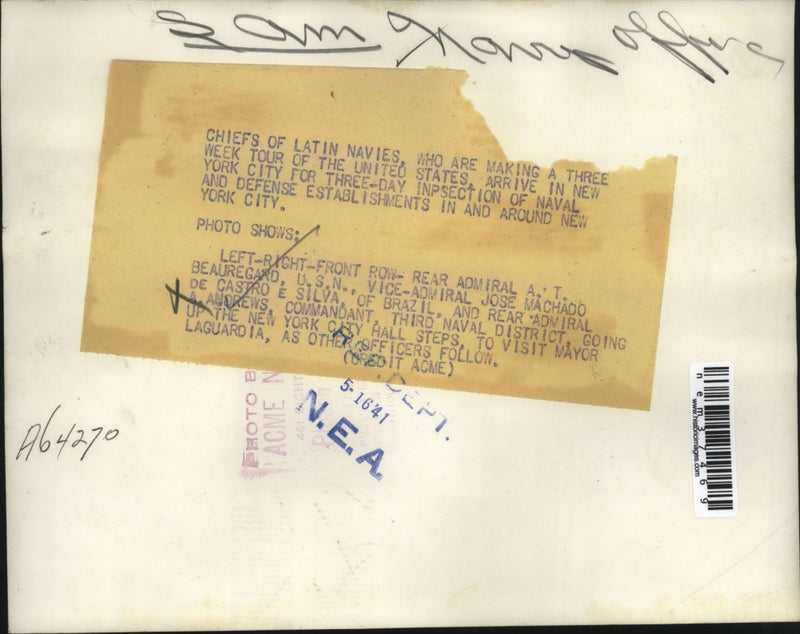 S Am Naval Officers
CHIEFS OF LATIN NAVIES, WHO ARE MAKING A THREE
WEEK TOUR OF THE UNITED STATES, ARRIVE IN NEW
YORK CITY FOR THREE-DAY INPSECTION OF NAVAL
AND DEFENSE ESTABLISHMENTS IN AND AROUND NEW
YORK CITY.
PHOTO SHOWS:
LEFT-RIGHT-FRONT ROW- REAR ADMIRAL A. T.
BEAUREGARD, U.S.N., VICE-ADMIRAL JOSE MACHADO
DE CASTRO E SILVA, OF BRAZIL, AND REAR ADMIRAL
A. ANDREWS, COMMANDANT, THIRD NAVAL DISTRICT, GOING
UP THE NEW YORK CITY HALL STEPS, TO VISIT MAYOR
LAGUARDIA, AS OTHER OFFICERS FOLLOW.
(CREDIT ACME)
DEPT.
5-16'41
N.E.A.
PHOTO B
ACME N
A64270
www.historicimages.com
nem37469